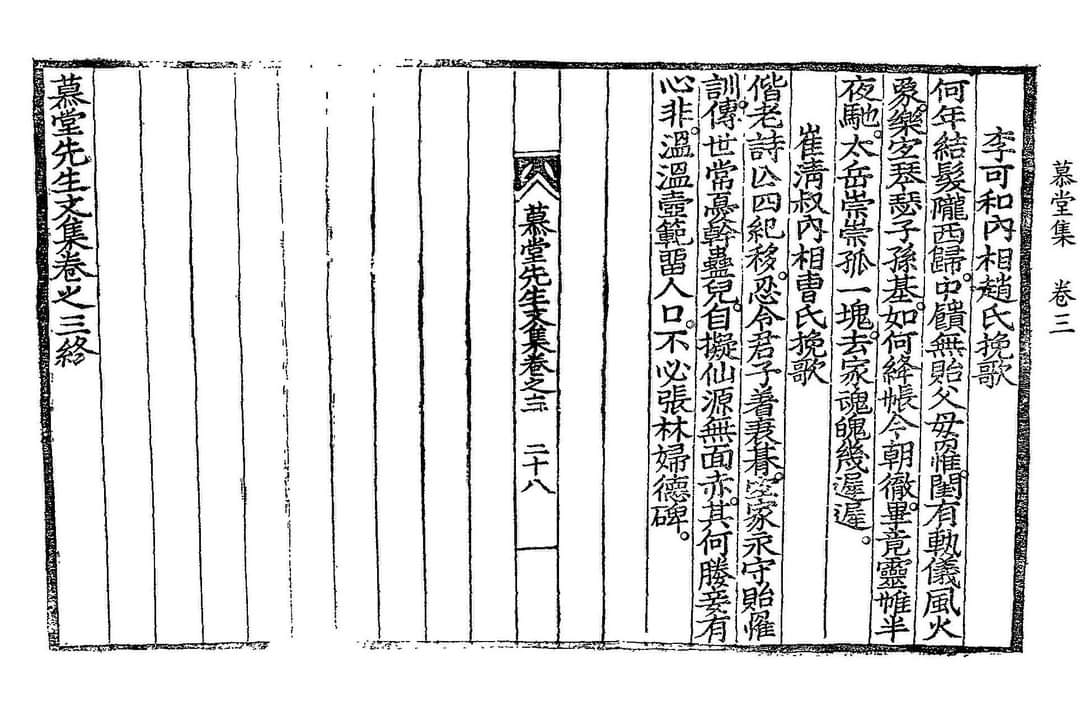 慕堂集 卷三
李可和內相趙氏挽歌
何年結髮隴西歸。中饋無貽父母罹。閨有軌儀風火
象。樂宜琴瑟子孫基。如何絳帳今朝徹。畢竟靈帷半
夜馳。太岳崇崇孤一塊。去家魂魄幾遲遲。
崔淸叔內相曺氏挽歌
偕老詩亾四紀移。忍令君子着衰朞。室家永守貽罹
訓。傳世常憂幹蠱兒。自擬仙源無面赤。其何媵妾有
心非。溫溫壼範畱人口。不必張林婦德碑。
慕堂先生文集卷之三 二十八
慕堂先生文集卷之三終